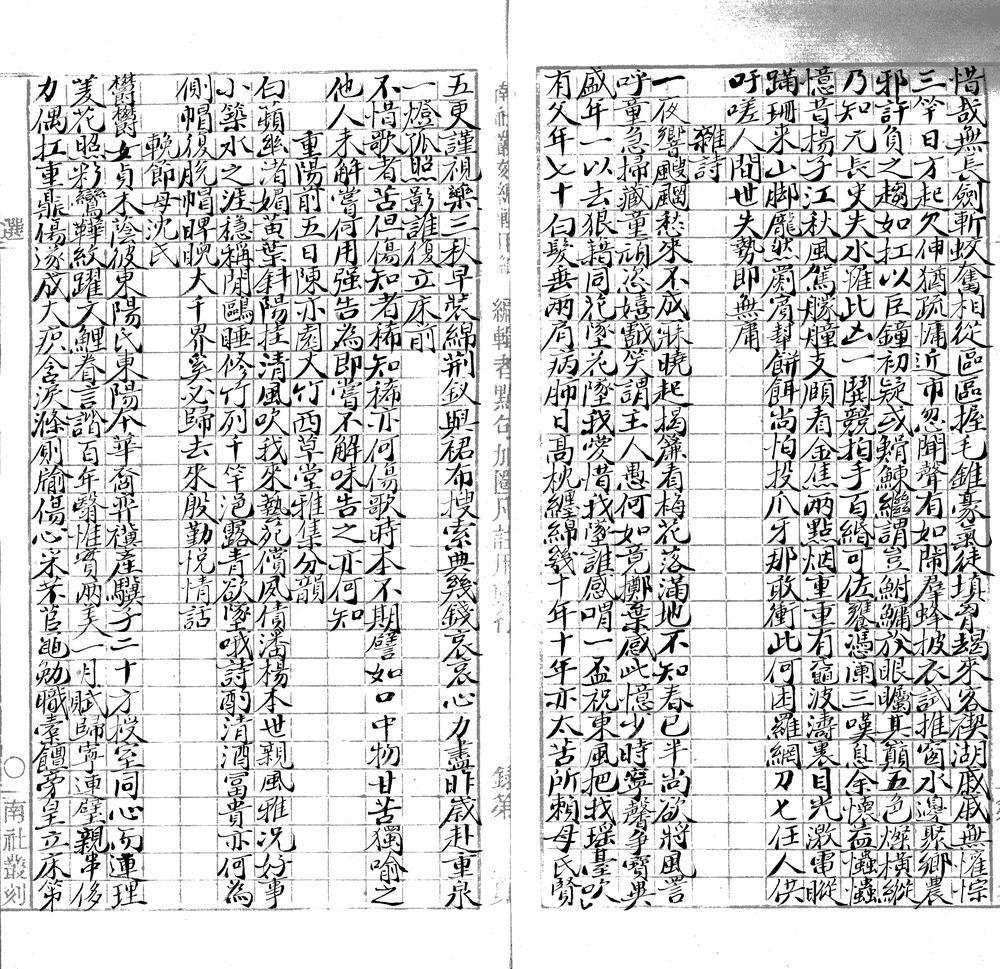 惜哉無長劍斬蛟奮相從區區握毛錐豪氣徒填胷朅來客禊湖戚戚無懽悰
三竿日方起欠伸猶疏慵近市忽聞聲有如鬧羣蜂披衣試推窗水邊聚鄉農
邪許負之趨如扛以巨鐘初疑或鱘鰊繼謂豈鮒鱅放眼矚其巔五色爛橫縱
乃知元長史失水罹此凶一鬨競拍手百緡可佐饔憑闌三嘆息余懷益忡忡
憶昔揚子江秋風駕艨艟支頤看金焦兩點烟重重有黿波濤裏目光激電瞛
蹣珊來山脚龐然罽賓幫餅餌尚怕投爪牙那敢衝此何困羅網刀匕任人供
吁嗟人間世失勢即無庸
雜詩
一夜響颼飀愁來不成寐曉起揭簾看梅花落滿地不知春已半尚欲將風詈
呼童急掃藏童頑恣嬉戲笑謂主人愚何如竟擲棄感此憶少時寧馨爭寶異
盛年一以去狼藉同花墜花墜我愛惜我墜誰感喟一盃祝東風把我瑤臺吹
有父年七十白髮垂兩肩病肺日高枕纏綿幾十年十年亦太苦所賴母氏賢
五更謹視藥三秋早裝綿荆釵與裙布搜索典幾錢哀哀心力盡昨歲赴重泉
一燈孤照影誰復立床前
不惜歌者苦但傷知者稀知稀亦何傷歌時本不期譬如口中物甘苦獨喻之
他人未解嘗何用強告為即嘗不解味告之亦何知
重陽前五日陳亦園大竹西草堂雅集分韻
白蘋紅渚媚黃葉斜陽挂清風吹我來藝苑償夙債潘楊本世親風雅况好事
小築水之涯穩稱閒鷗睡修竹列千竿浥露青欲墜哦詩酌清酒富貴亦何為
側帽復脫帽睥睨大千界奚必歸去來殷勤悦情話
輓節母沈氏
欝欝女貞木陰彼東陽氏東陽本華裔弈禩產驥子二十方授室同心而連理
菱花照彩鸞鞶紋躍文鯉眷言諧百年翳惟賓兩美一月賦歸寧連璧親串侈
力偶扛重鼎傷遂成大疻含淚滌厠牏傷心采芣苢黽勉職橐饘旁皇立床第
選
南社叢刻
南社叢刻編輯
編輯者點句加圈凡註
錄第